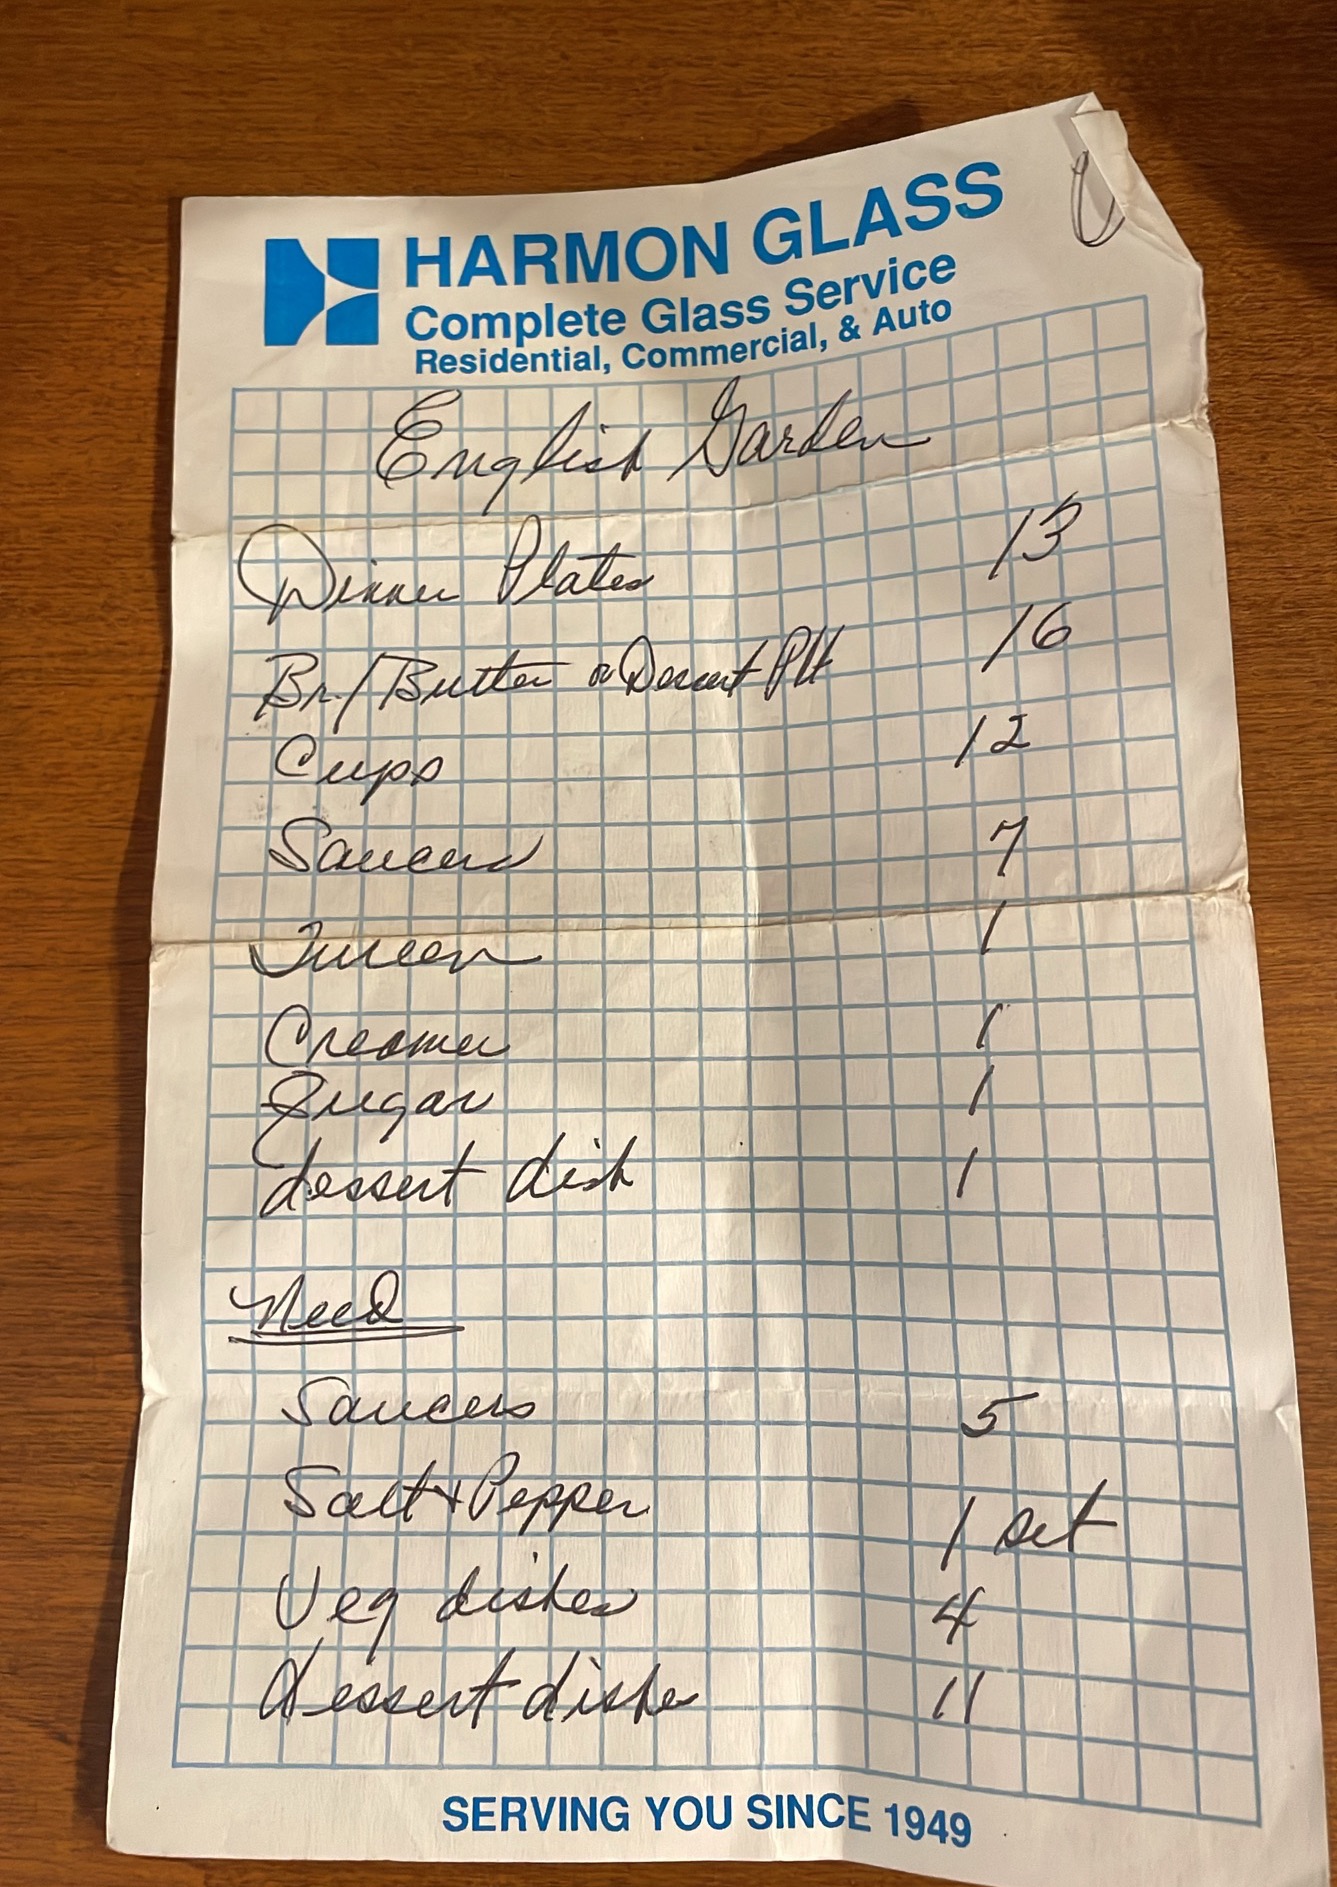 HARMON GLASS
Complete Glass Service
Residential, Commercial, & Auto
English Garden
Dinner Plates 13
Br./Butter or Desert Plt 16
Cups 12
Saucers 7
Tureen 1
Creamer 1
Sugar 1
dessert dish 1
Need
Saucers 5
Salt + Pepper 1 set
Veg dishes 4
dessert dishes 11
SERVING YOU SINCE 1949